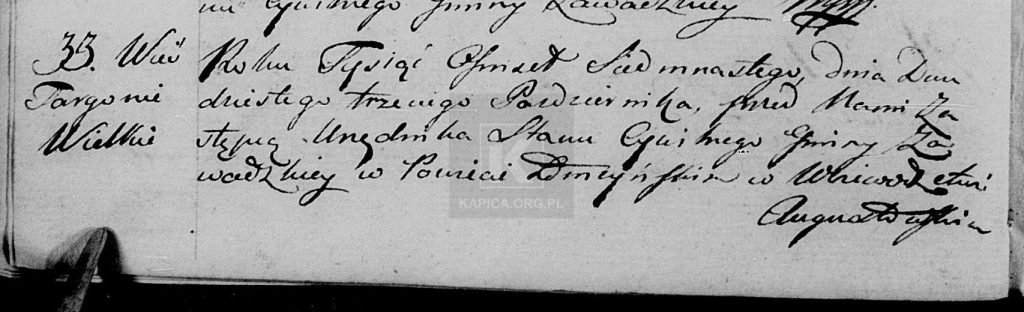 nu Cywilnego Gminy Zawadzkiey
33. Wieś
Targonie
Wielkie
Roku Tysiąc Ośmset Siedmnastego, dnia Dwu
dziestego trzeciego Pazdziernika, przed Nami Za
stępcą Urzędnika Stanu Cywilnego Gminy Za
wadzkiey w Powiecie Tykocińskim w Woiewodztwie
Augustowskim
KAPICA.ORG.PL